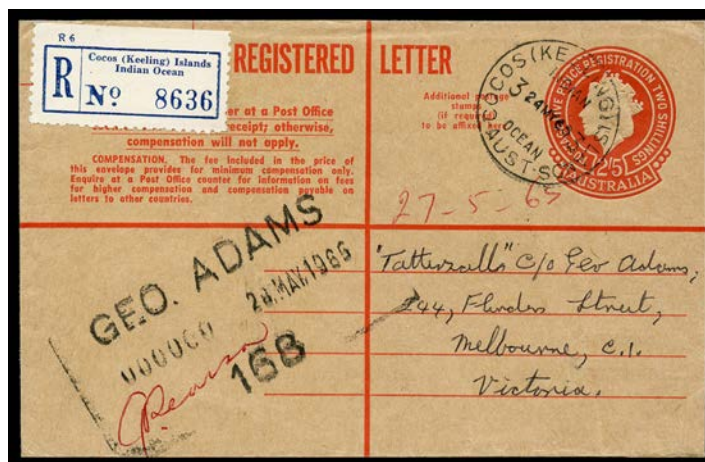 R 6
Cocos (Keeling) Islands
Indian Ocean
R No 8636
REGISTERED LETTER
er at a Post Office
receipt; otherwise,
compensation will not apply.
COMPENSATION. The fee included in the price of
this envelope provides for minimum compensation only.
Enquire at a Post Office counter for information on fees
for higher compensation and compensation payable on
letters to other countries.
Additional postage
stamps
(if required)
to be affixed here
COCOS (KEELING) IS
INDIAN
OCEAN
AUST.
PRICE REGISTRATION TWO SHILLINGS
2/5
AUSTRALIA
27-5-65
GEO. ADAMS
000000 28 MAY 1965
168
"Tattersalls" C/o Geo Adams,
244, Flinders Street,
Melbourne, C.1.
Victoria.